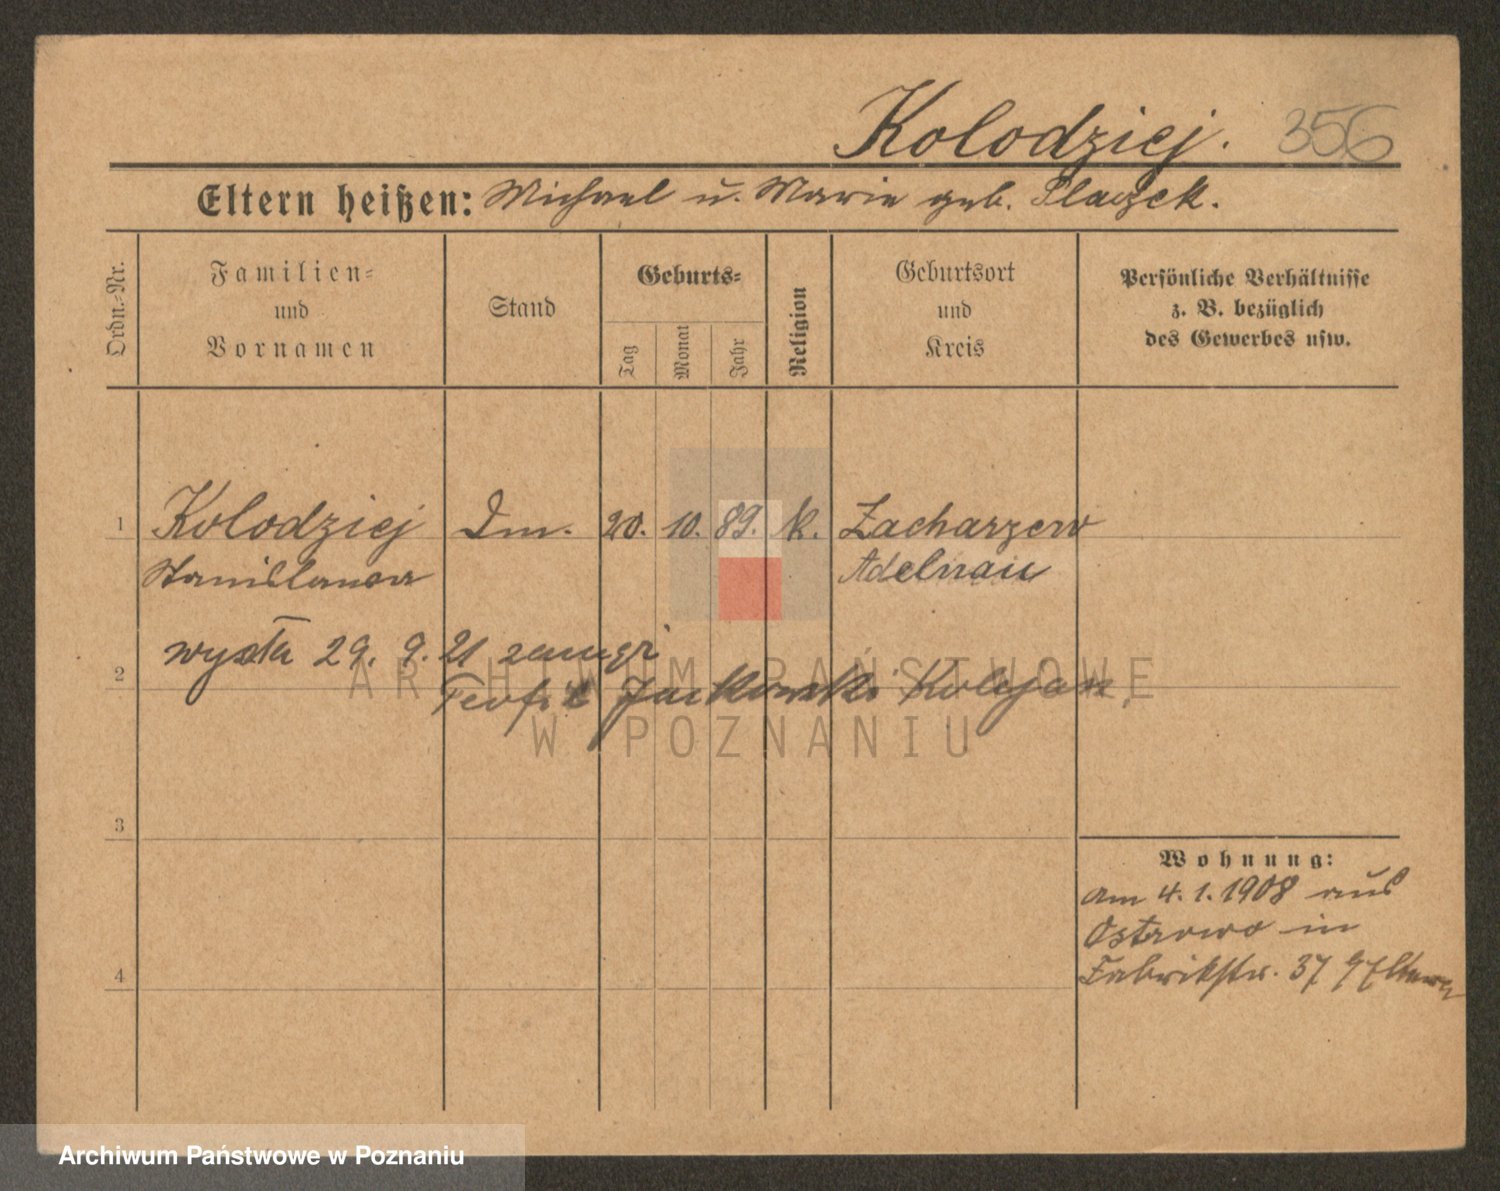 Kolodziej. 356
Eltern heißen: Michael u. Marie geb. Placzek.
Ordn.-Nr.
Familien-
und
Vornamen
Stand
Geburts-
Tag
Monat
Jahr
Religion
Geburtsort
und
Kreis
Persönliche Verhältnisse
z. B. bezüglich
des Gewerbes usw.
1 Kolodziej Dm. 20. 10. 89. k. Zacharzew
Stanislawa Adelnau
wyszła 29. 9. 21 zamąż
2 Teofil Jackowski
ARCHIWUM PAŃSTWOWE
W POZNANIU
3
Wohnung:
am 4. 1. 1908 aus
Ostrowo in
Fabrikstr. 37
4
Archiwum Państwowe w Poznaniu